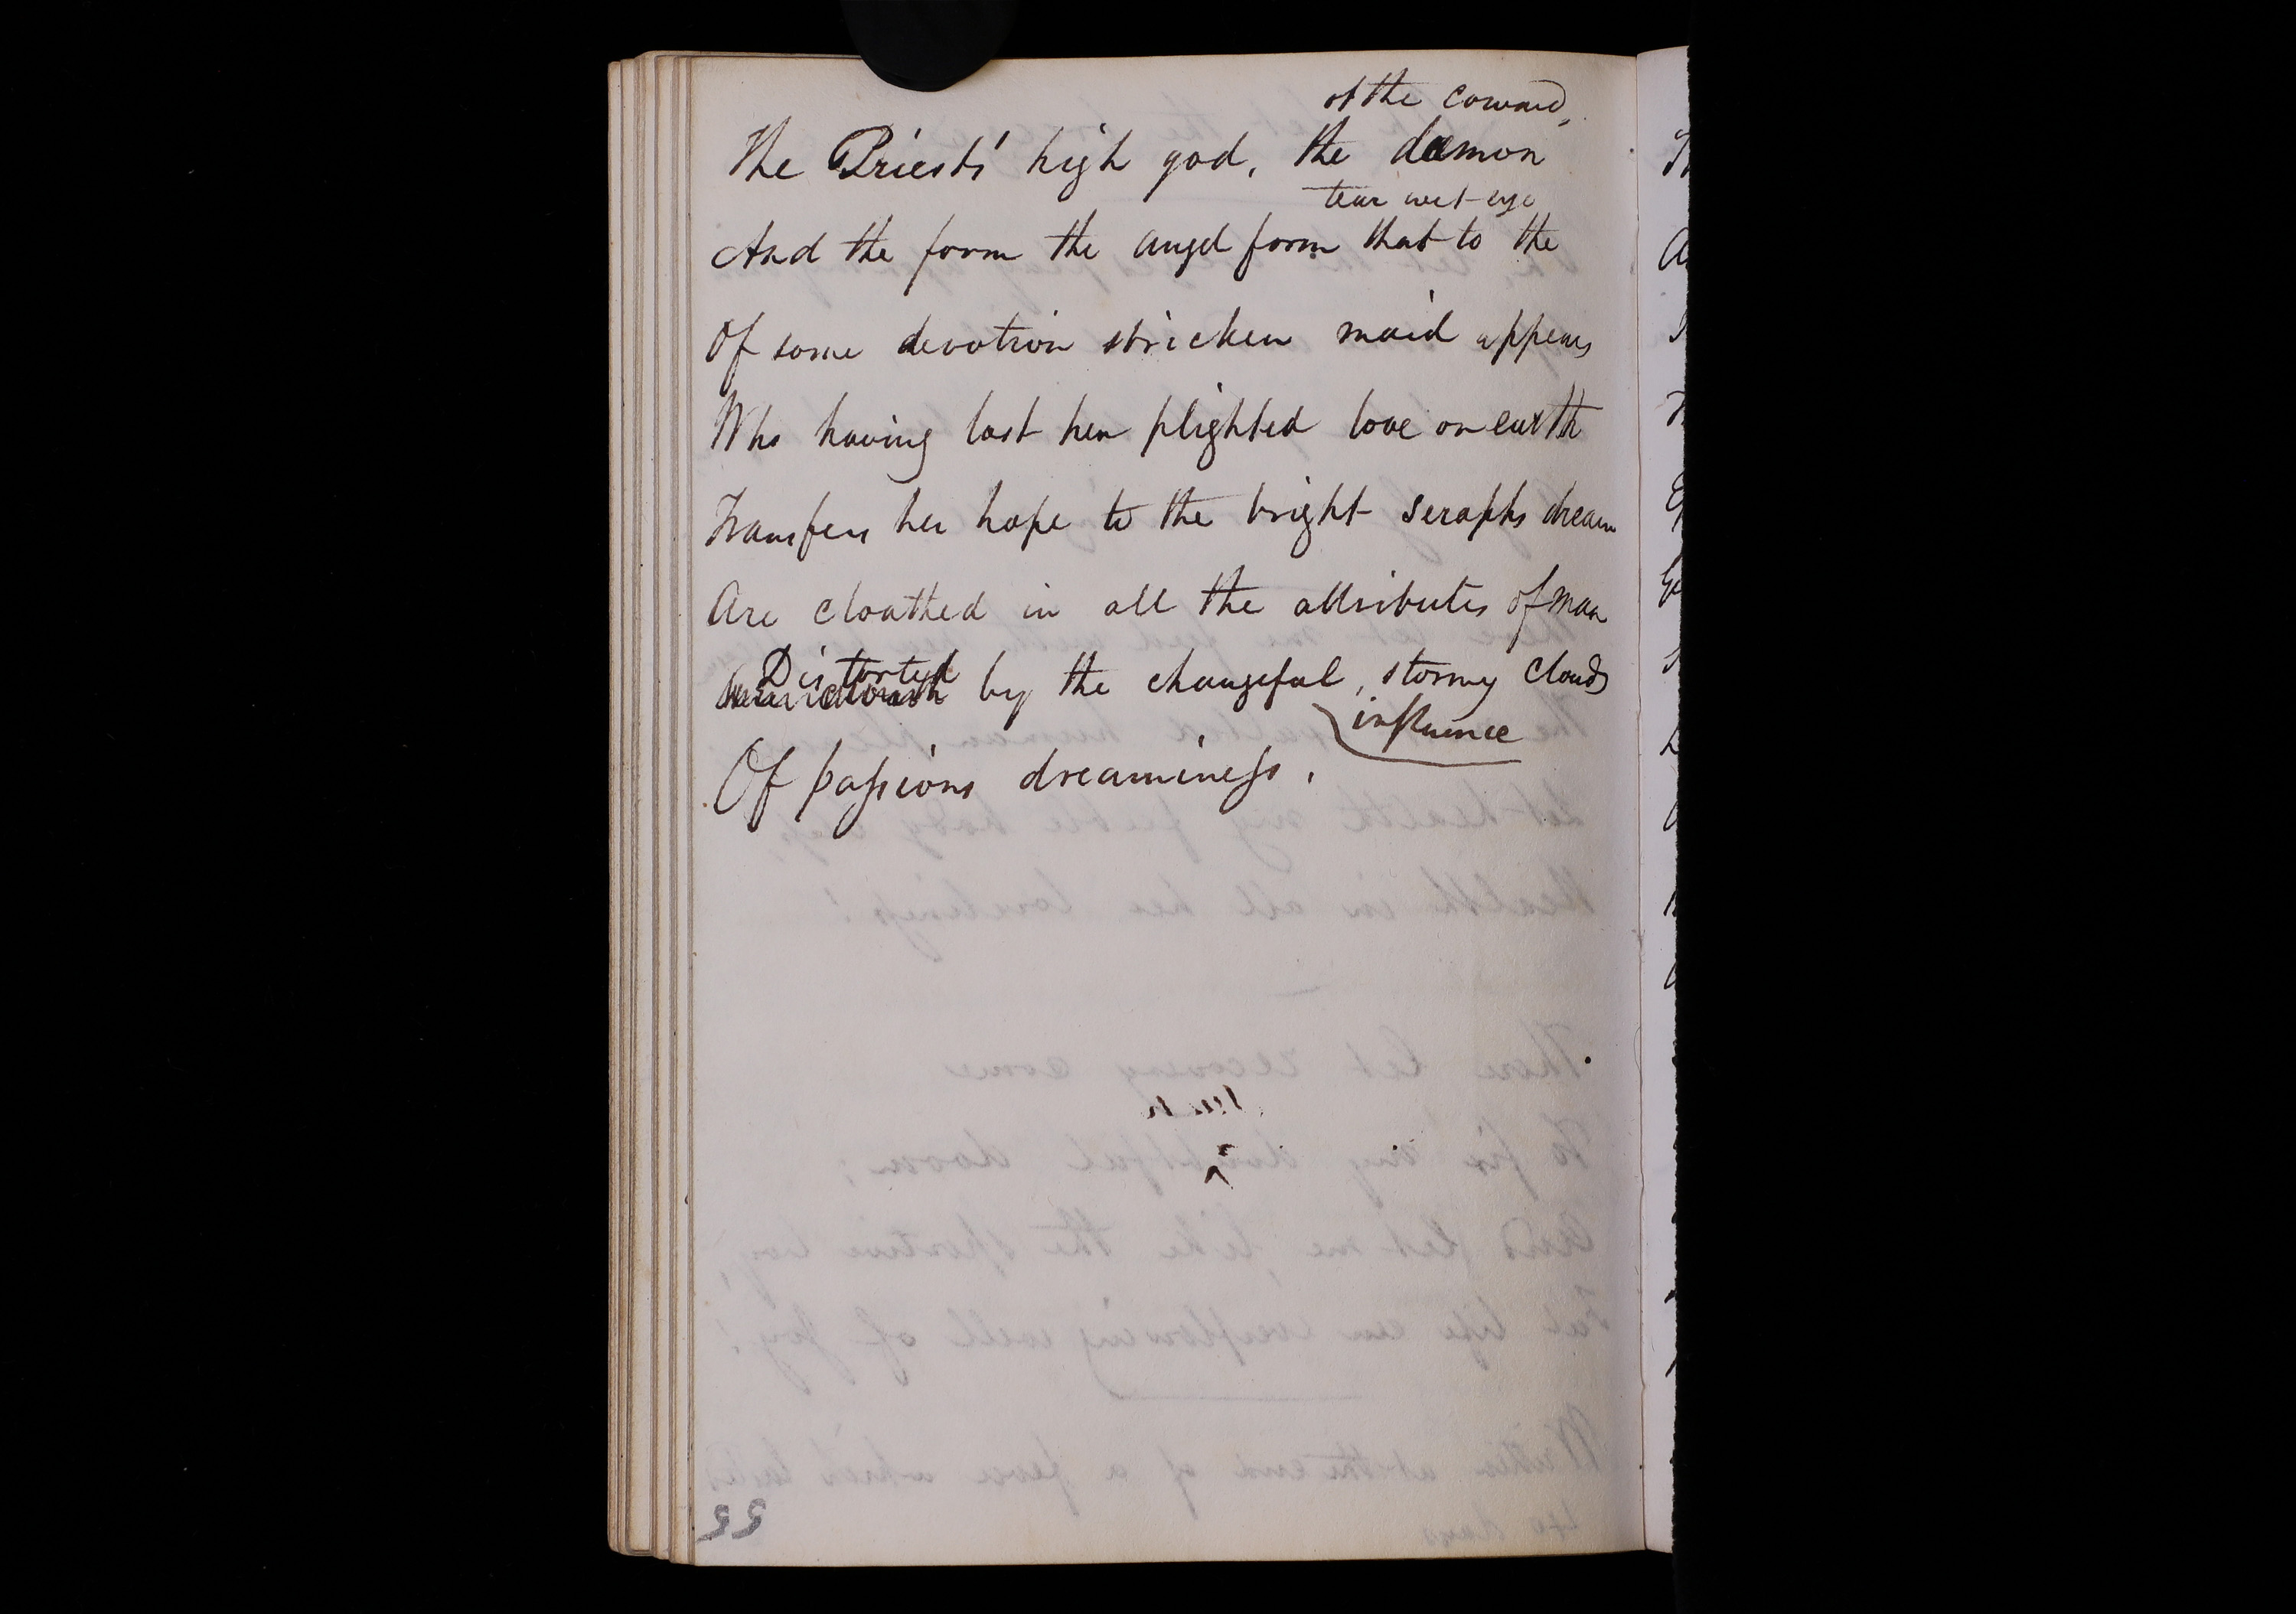 of the coward,
The Priests' high god, the dæmon
tear wet-eye
And the form the angel form that to the
Of some devotion stricken maid appears
Who having lost her plighted love on earth
Transfers her hope to the bright seraphs dream
Are cloathed in all the attributes of man
Distorted by the changeful, stormy clouds
influence
Of passions dreaminess.